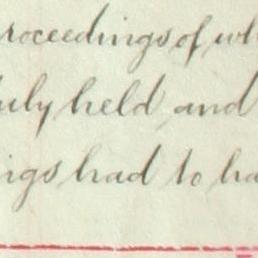 roceedings of wh
uly held and
ings had to ha